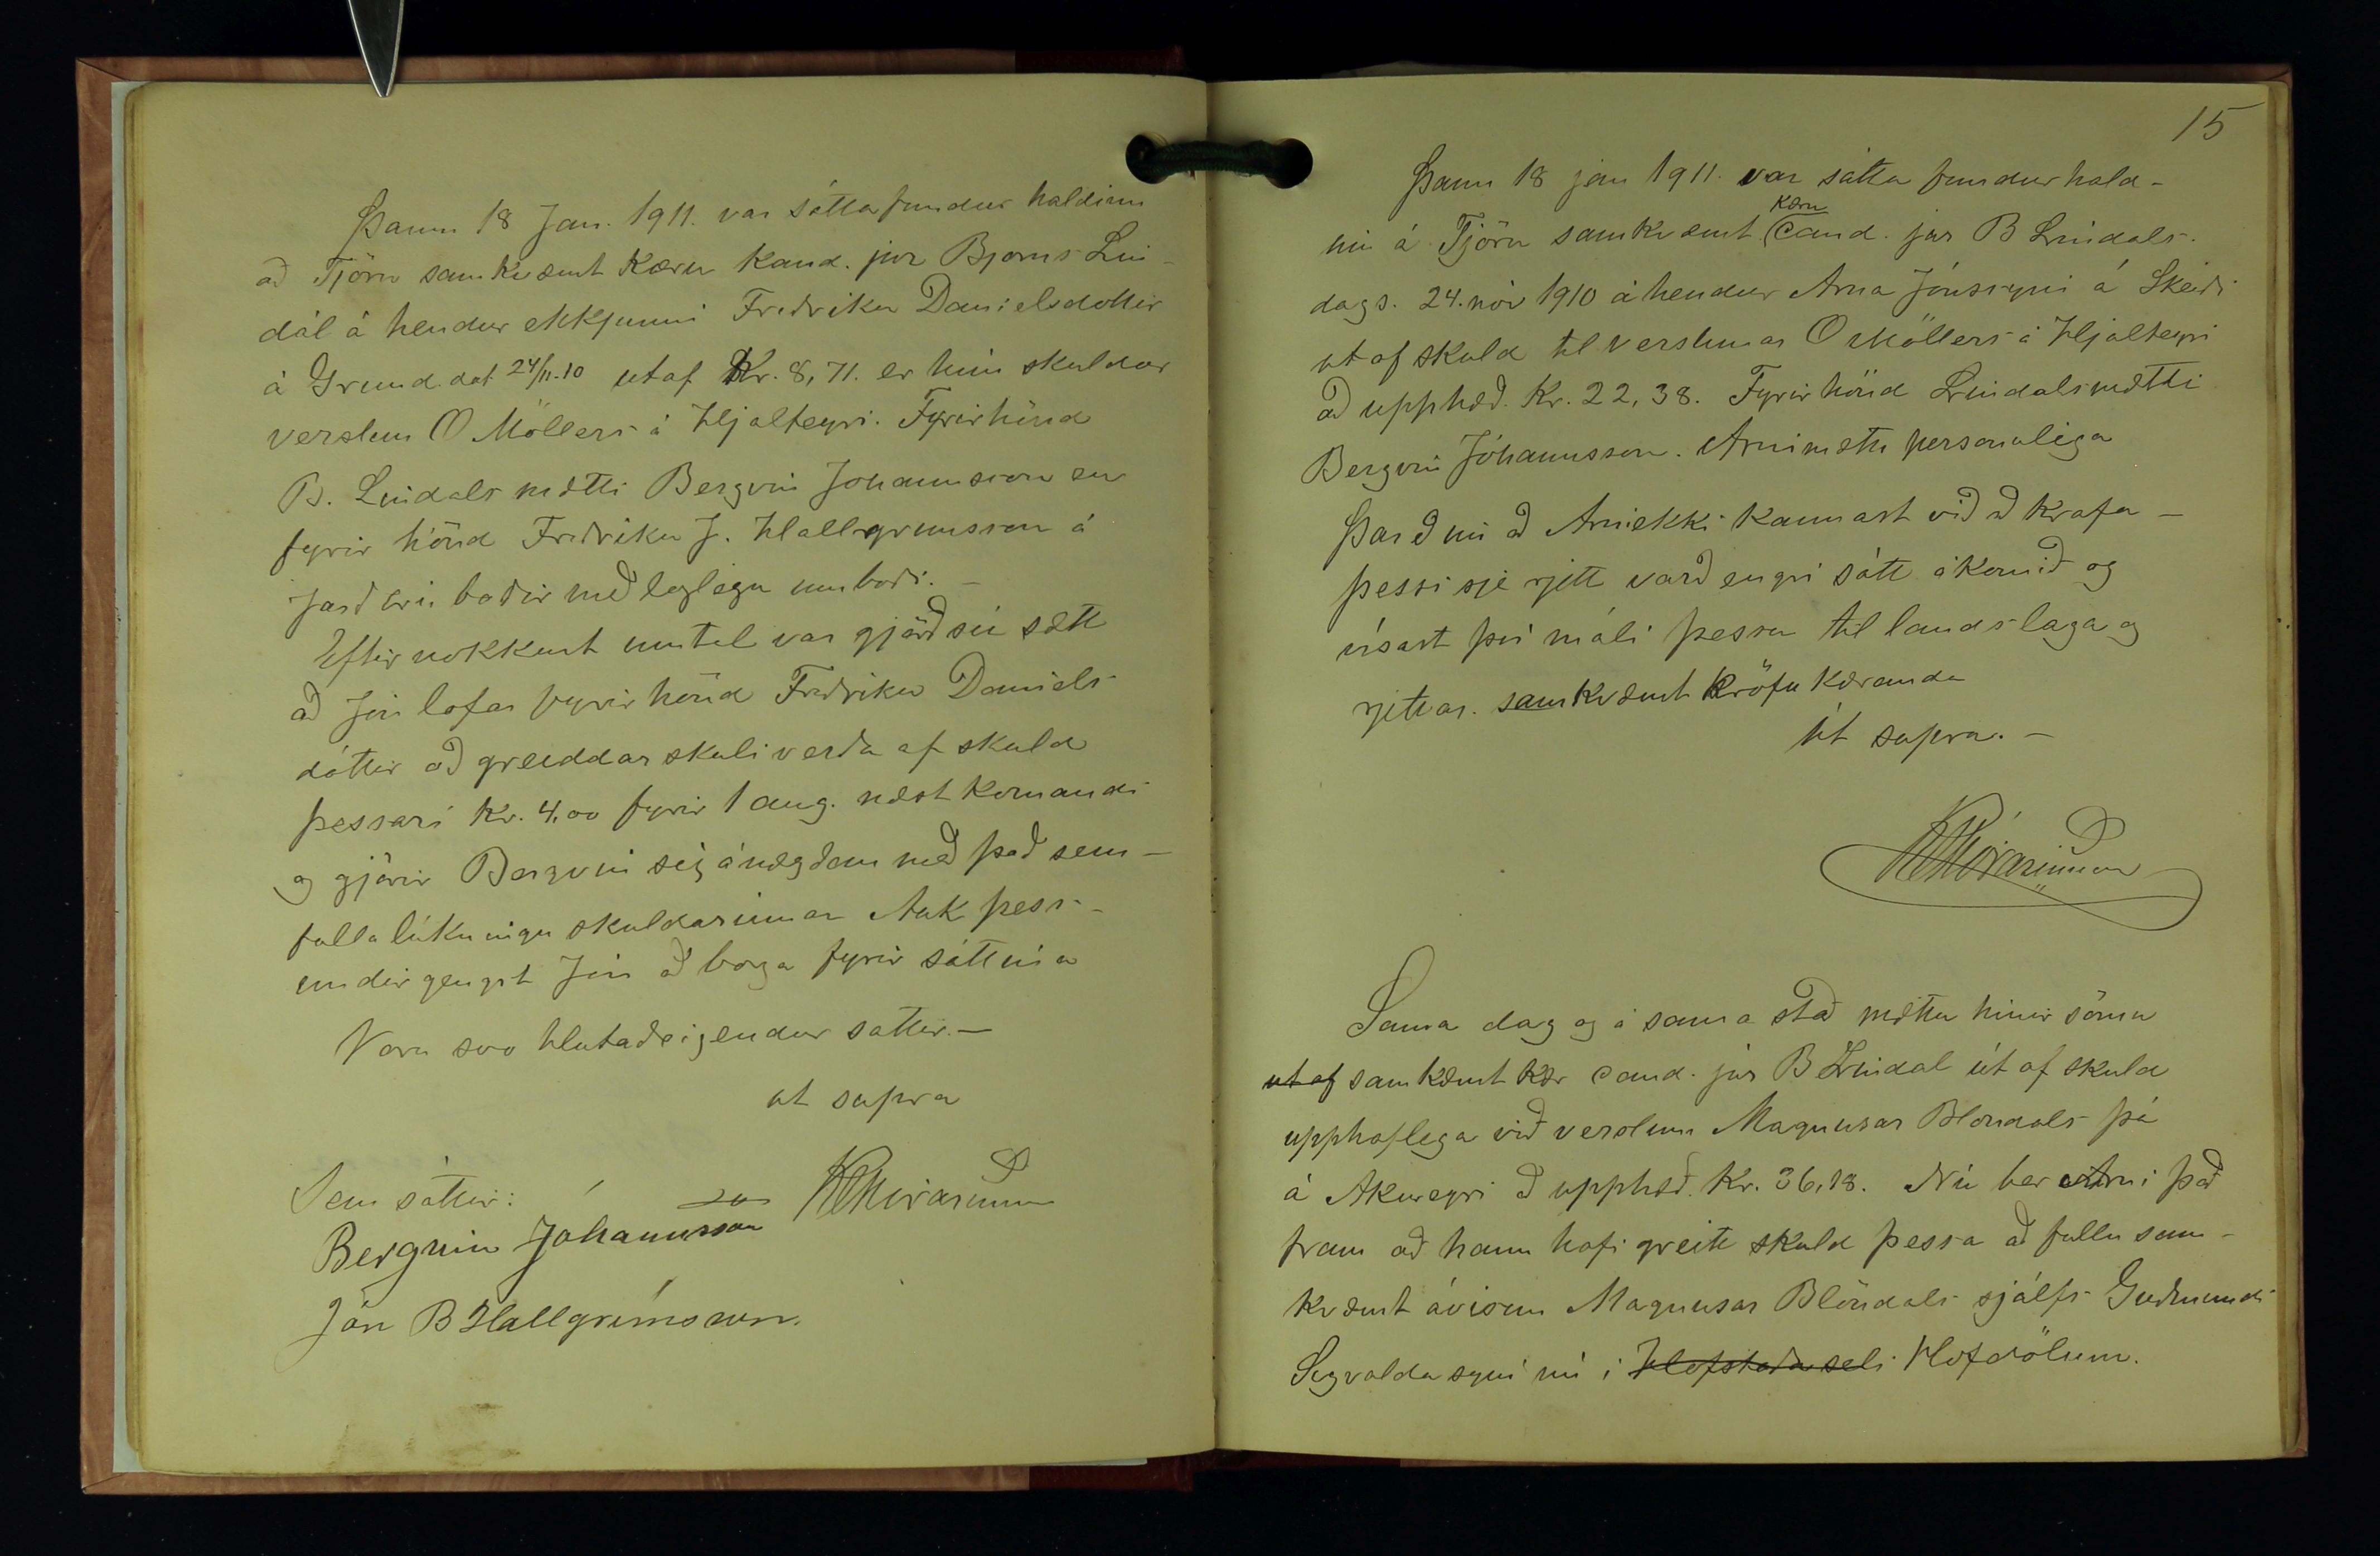 Þann 18 Jan. 1911. var sátta fundur haldinn
að Tjörn samkvæmt Kæru Kand. jur Bjorns Lin-
dál á hendur ekkjunni Fredriku Danielsdottir
á Grund dat. 24/11.10 útaf Kr. 8,71. er hún skuldar
verslun O Möllers á Hjalteyri. Fyrir hönd
B. Lindals mætti Bergvin Johannsson en
fyrir hönd Fredriku J. Hallgrimsson á
báðir með loglegu umboði. -
Eftir nokkurt umtal var gjörð sú sætt
að Jón lofar fyrir hönd Fredriku Daniels-
dóttir að greiddar skuli verða af skuld
þessari Kr. 4,00 fyrir 1 aug. næst komandi
og gjörir Bergvin sig ánægðan með það sem -
fulla lúkningu skuldarinnar Auk þess -
undirgengst Jón að borga fyrir sáttina
Voru svo hlutaðeigendur sattir. -
ut supra
Sem sáttir:
KrEÞórarinsson
Bergvin Jóhannsson
Jón B Hallgrímsson.
15
Þann 18 jan 1911. var sátta fundur hald-
Kæru
inn á Tjörn samkvæmt cand. jur B Lindals.
dags. 24. nóv 1910 á hendur Arna Jónssyni á Skeiði
ut af skuld til verslunar O Möllers á Hjalteyri
að upphæð. Kr. 22,38. Fyrir hönd Lindals mætti
Bergvin Jóhannsson. Arni mætti personulega
Þar eð nú að Arni ekki kannast við að krafa -
þessi sje rjett varð engri sátt ákomið og
vísast því máli þessu til landslaga og
rjettar. samkvæmt Kröfu Kæranda
Út supra. -
KrEÞórarinsson
Sama dag og á sama stað mættu hinir sömu
ut af samkæmt Kær cand. jur B Lindal út af skuld
upphaflega við verslun Magnusar Blondals þá
á Akureyri að upphæð. Kr. 36,18. Nú ber Arni það
fram að hann hafi greitt skuld þessa að fullu sam-
kvæmt ávisun Magnusar Blöndals sjálfs Guðmundi
Sigvaldasyni nú i Hofstaðaseli Hofdölum.